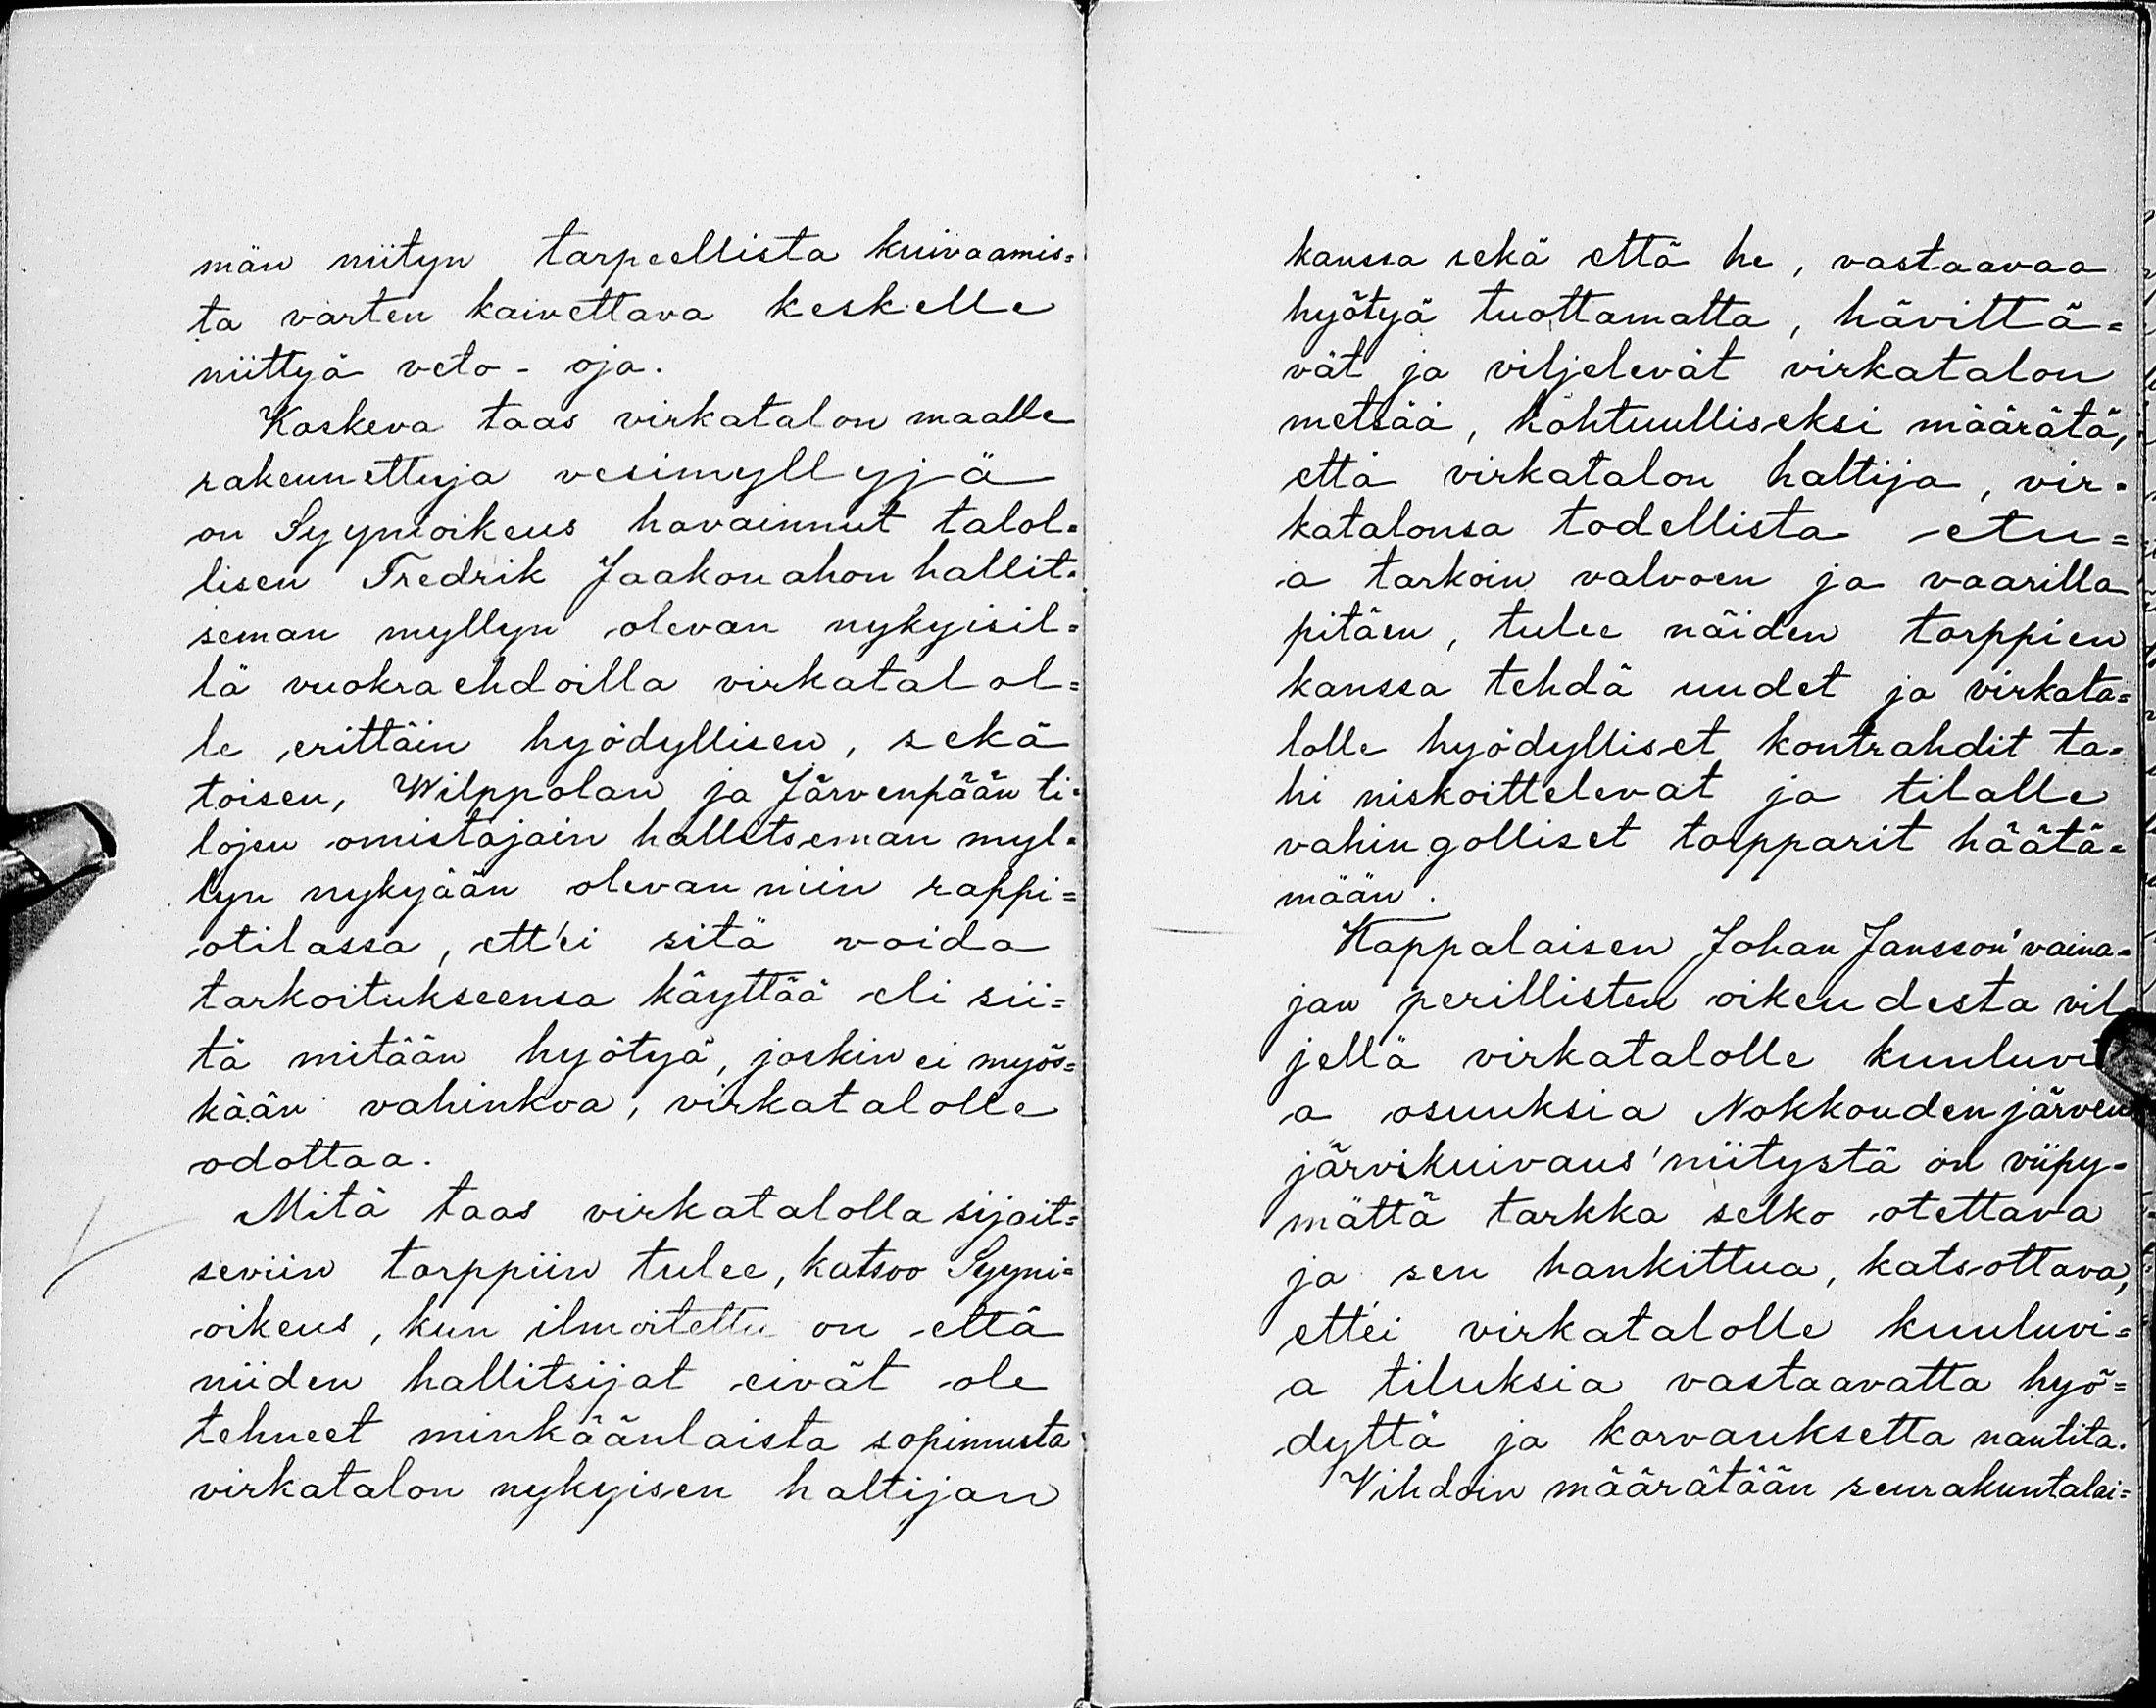 män niityn tarpeellista kuivaamis=
ta varten kaivettava keskelle
niittyä veto-oja.
Koskeva taas virkatalon maalle
rakennettuja vesimyllyjä
on Syynioikeus havainnut talol=
lisen Fredrik Jaakonahon hallit=
seman myllyn olevan nykyisil=
lä vuokraehdoilla virkatalol=
le erittäin hyödyllisen, sekä
toisen, Wilppolan ja Järvenpään ti=
lojen omistajain hallitseman myl=
lyn nykyään olevan niin rappi=
otilassa, ett'ei sitä voida
tarkoitukseensa käyttää eli sii=
tä mitään hyötyä, joskin ei myös=
kään vahinkoa, virkatalolle
odottaa.
Mitä taas virkatalolla sijait=
seviin torppiin tulee, katsoo Syyni=
oikeus, kun ilmoitettu on että
niiden hallitsijat eivät ole
tehneet minkäänlaista sopimusta
virkatalon nykyisen haltijan
kanssa sekä että he, vastaavaa
hyötyä tuottamatta, hävittä=
vät ja viljelevät virkatalon
metsää, kohtuulliseksi määrätä,
että virkatalon haltija, vir=
katalonsa todellista etu=
a tarkoin valvoen ja vaarilla
pitäen, tulee näiden torppien
kanssa tehdä uudet ja virkata=
lolle hyödylliset kontrahdit ta=
hi niskoittelevat ja tilalle
vahingolliset torpparit häätä=
mään.
Kappalaisen Johan Jansson' vaina=
jan perillisten oikeudesta vil
jellä virkatalolle kuuluvi
a osuuksia Nokkoudenjärven
järvikuivaus'niitystä on viipy=
mättä tarkka selko otettava
ja sen hankittua, katsottava,
ett'ei virkatalolle kuuluvi=
a tiluksia vastaavatta hyö=
dyttä ja korvauksetta nautita.
Vihdoin määrätään seurakuntalai=